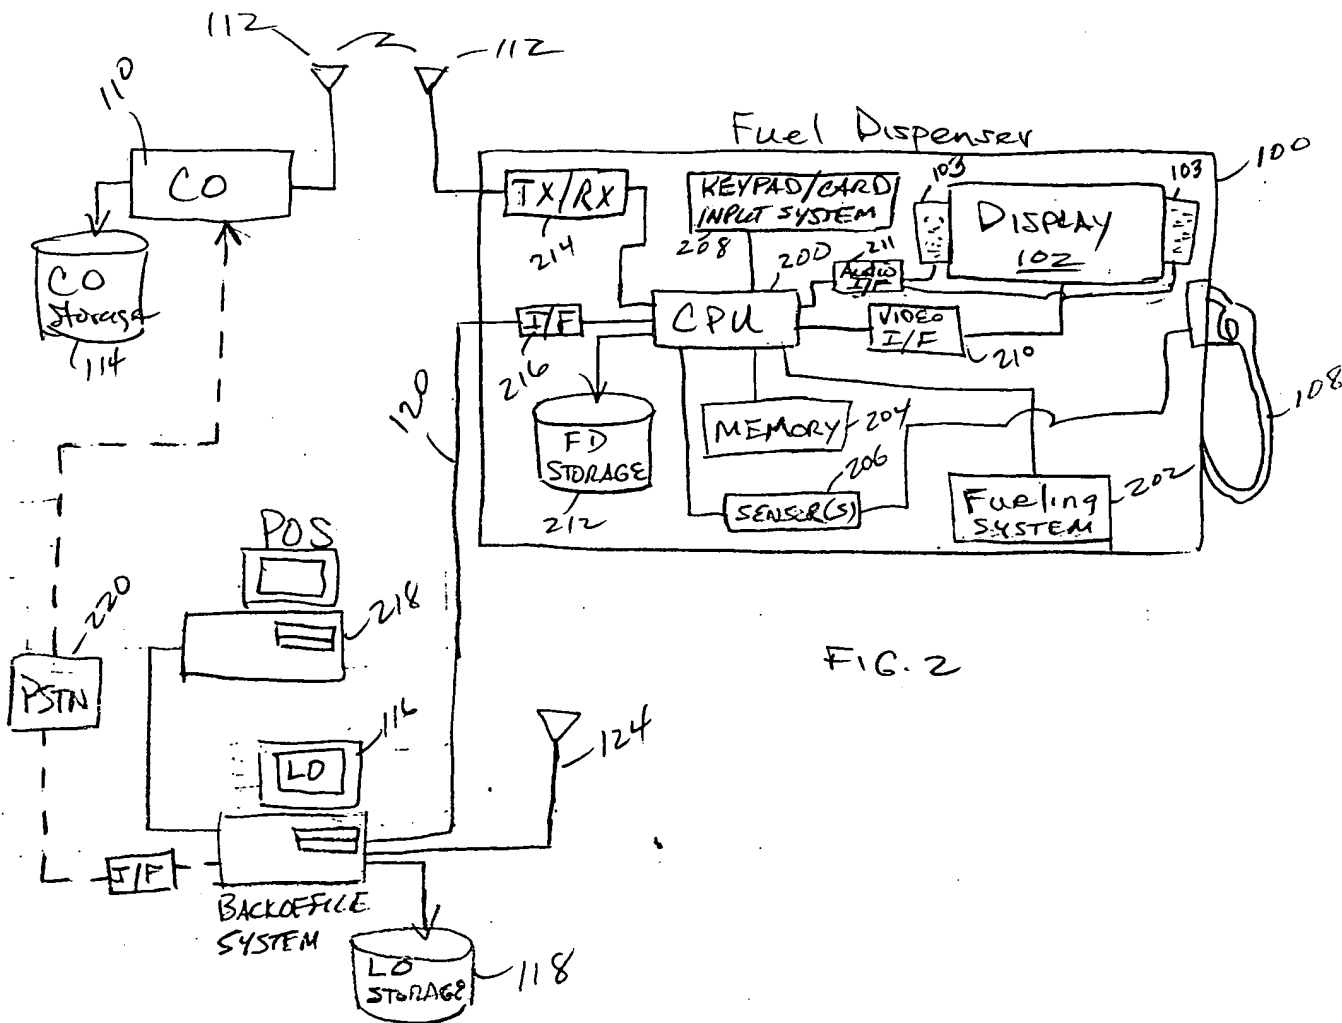 112
112
110
Fuel Dispenser
100
CO
TX/RX
214
KEYPAD/CARD
INPUT SYSTEM
208
103
DISPLAY
102
103
200
211
AUDIO
I/F
CO
Storage
114
I/F
216
CPU
VIDEO
I/F
210
108
120
FD
STORAGE
212
MEMORY
204
206
SENSER(S)
Fueling
SYSTEM
202
POS
218
220
PSTN
FIG. 2
116
LO
124
I/F
BACKOFFICE
SYSTEM
LO
STORAGE
118